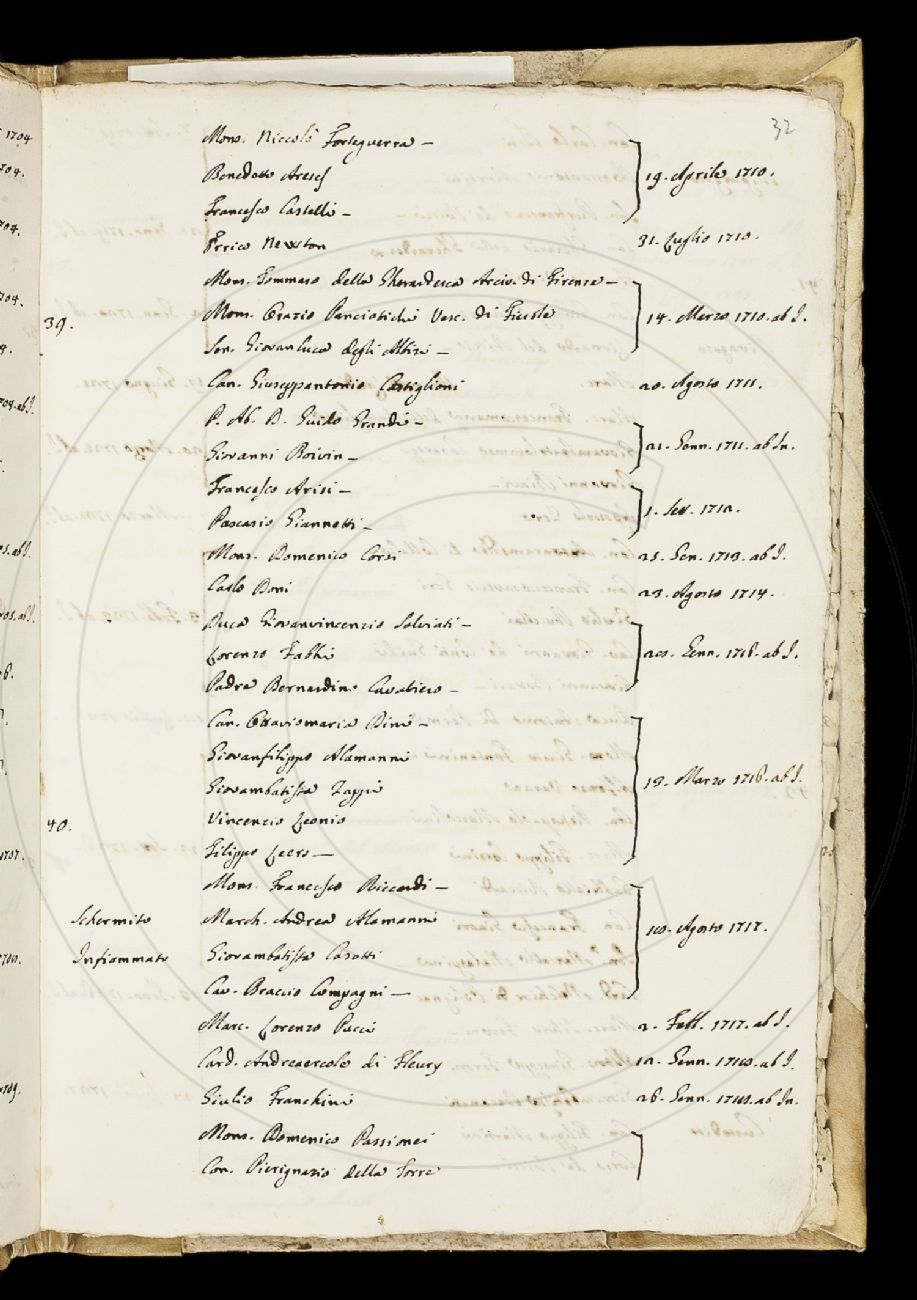 32
Mons. Niccolò Forteguerra –
Benedetto Aresi
Francesco Castelli –
19. Aprile 1710.
Errico Newton 31. Luglio 1710.
39.
Mons. Tommaso della Gherardesca Arciv. di Firenze –
Mons. Orazio Panciatichi Vesc. di Fiesole
Sen. Giovanluca degli Albizi –
14. Marzo 1710. ab I.
Can. Giuseppantonio Castiglioni 20. Agosto 1711.
P. Ab. D. Guido Grandi –
Giovanni Boivin –
21. Genn. 1711. ab In.
Francesco Arisi –
Pascasio Giannetti –
1. 1712.
Mons. Domenico Corsi 25. Gen. 1713. ab I.
Carlo Doni 23. Agosto 1714.
Duca Giovanvincenzio Salviati –
Lorenzo Fabbri
Padre Bernardino Cavaliero –
Genn. 1716. ab I.
40.
Can. Ottaviomaria Dini –
Giovanfilippo Alamanni
Giovambatista Zappi
Vincenzio Leonio
Filippo Leers –
19. Marzo 1716. ab I.
Mons. Francesco Riccardi –
Schermito March. Andrea Alamanni
Infiammato Giovambatista Casotti
Cav. Braccio Compagni –
Agosto 1717.
Marc. Lorenzo Pucci 2. Febb. 1717. ab I.
Card. Andreaercole di Fleury 12. Genn. ab I.
Giulio Franchini 26. Genn. ab In.
Mons. Domenico Passionei
Can. Pierignazio della Torre
1704
1707.
1709.